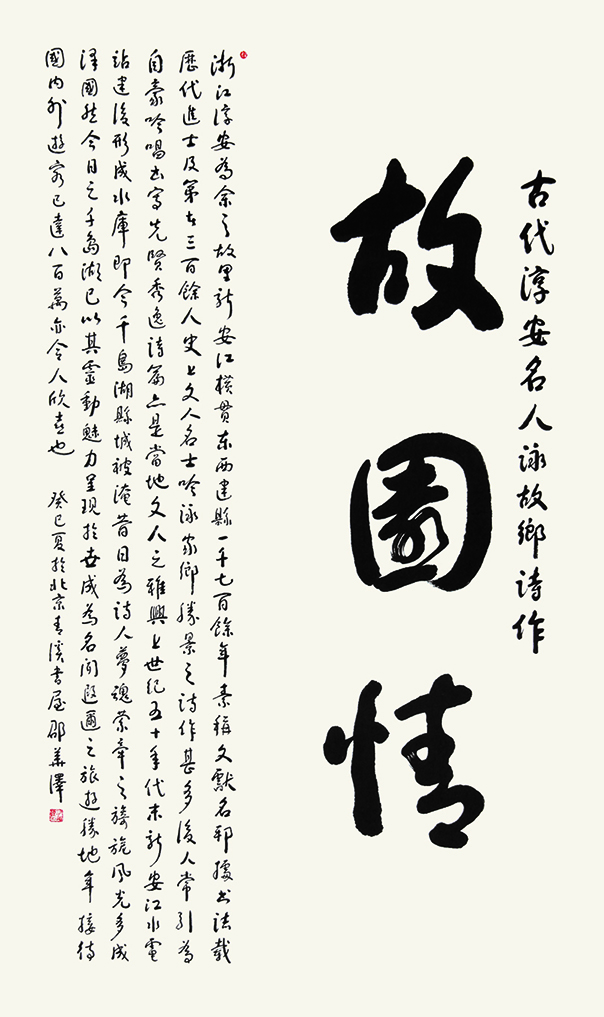 古代淳安名人詠故鄉詩作
故園情
浙江淳安為余之故里新安江橫贯东西建縣一千七百餘年素稱文獻名邦據史法載
歷代進士及第在三百餘人史上文人名士吟詠家鄉勝景之詩作甚多後人常引為
自豪吟唱书寫先賢秀逸詩篇亦是當地文人之雅興上世纪五十年代末新安江水電
站建後形成水庫即今千島湖縣城被淹昔日為詩人夢魂萦牵之旖旎風光多成
澤國然今日之千島湖已以其靈動魅力呈現於世成為名聞遐邇之旅遊勝地年接待
國内外遊客已達八百萬亦令人欣喜也 癸巳夏於北京青溪書屋邵華澤